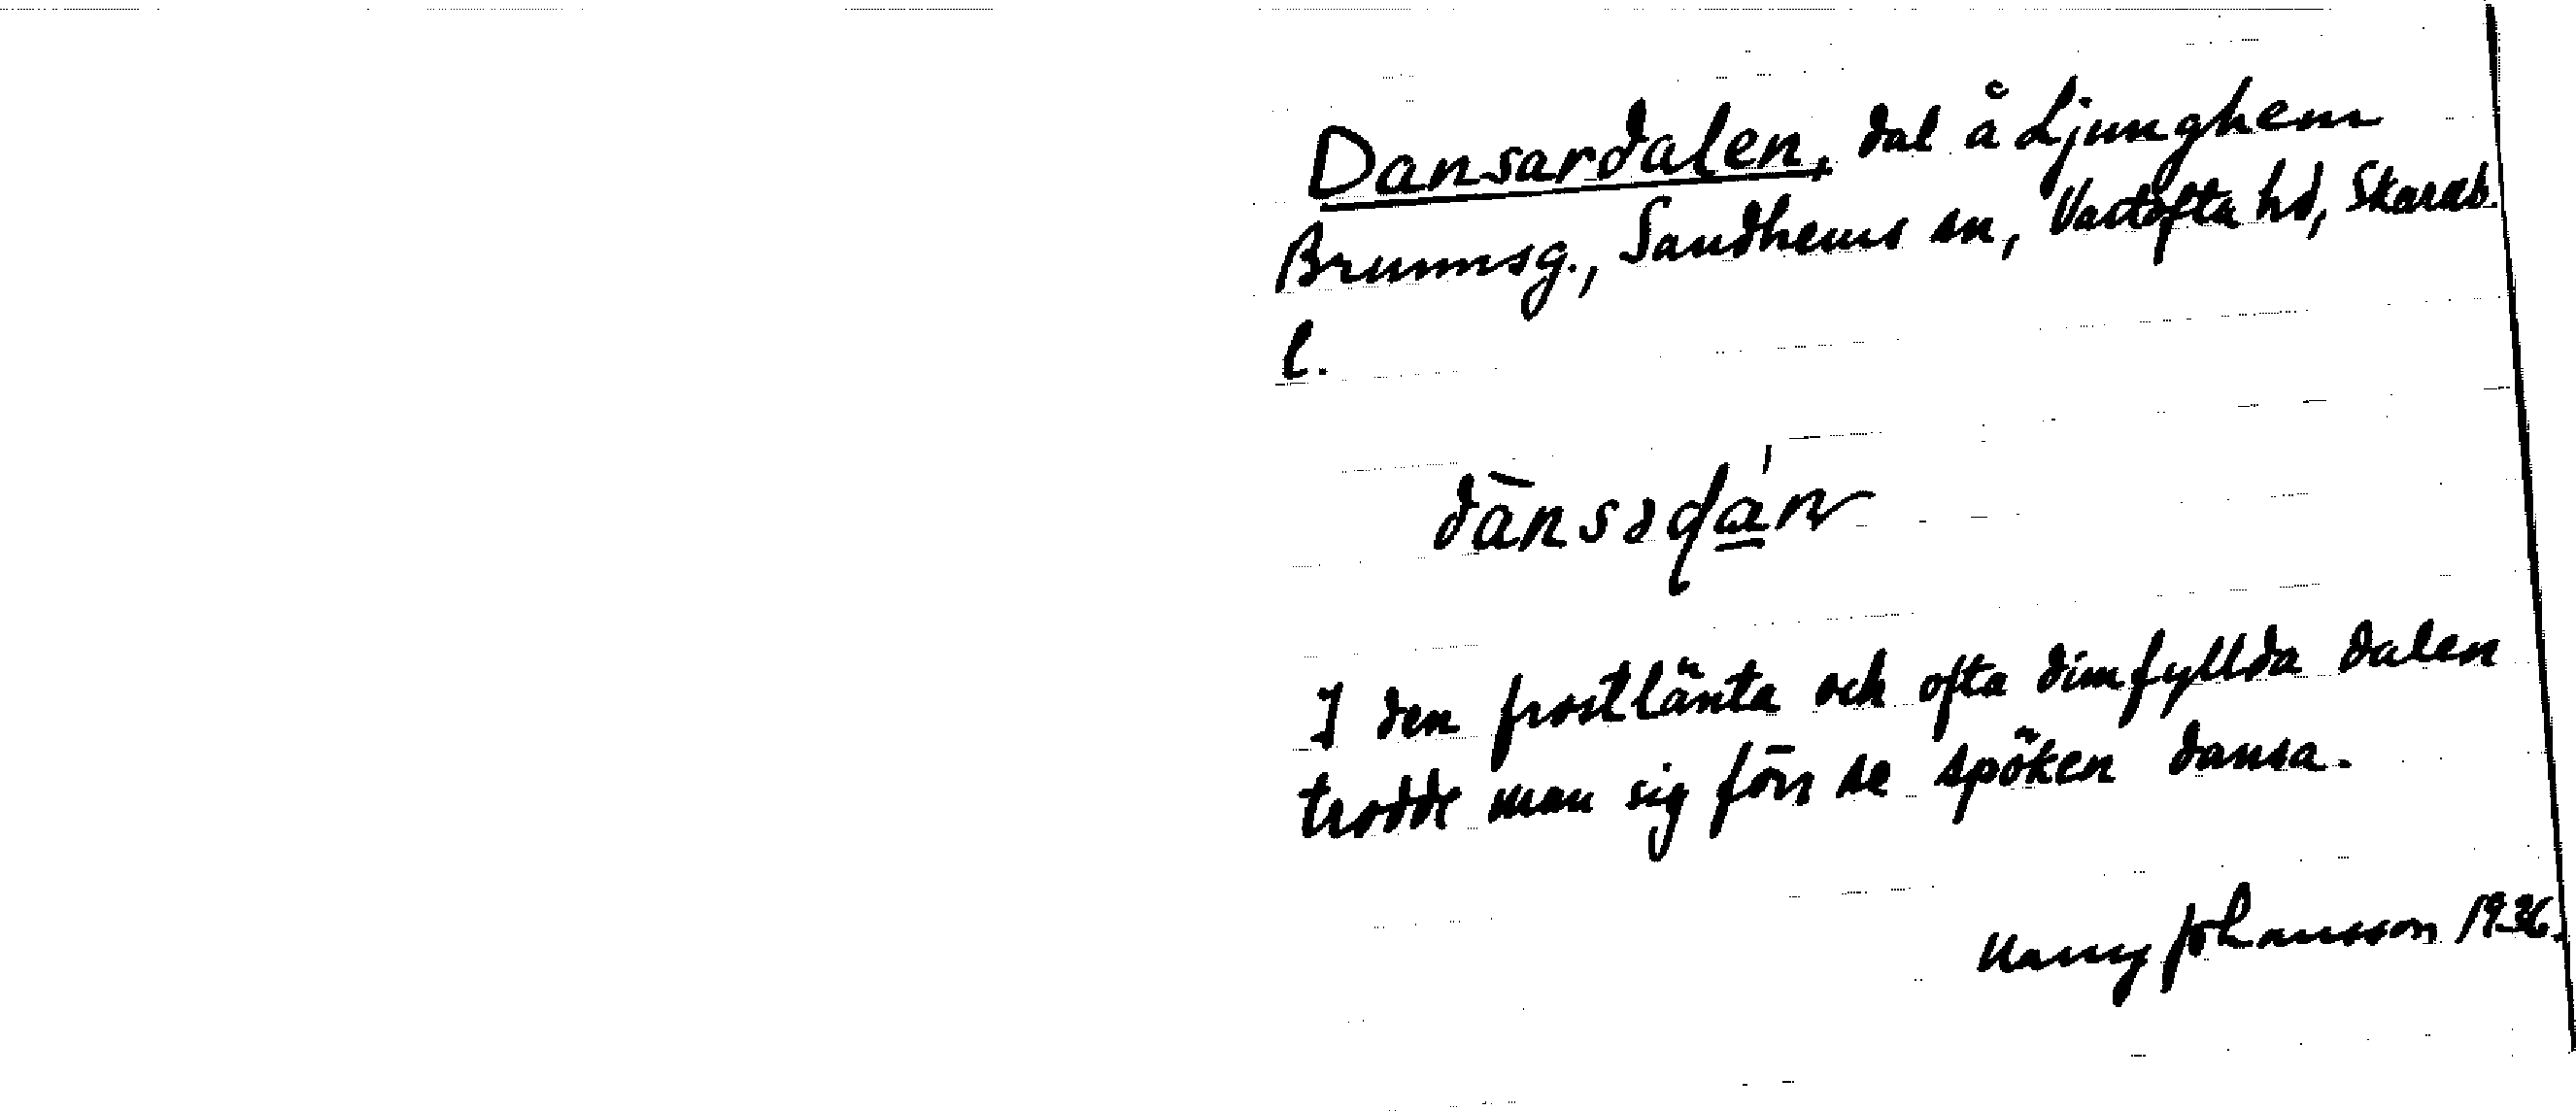 Dansardalen, dal å Ljunghem
Brunnsg., Sandhems sn, Vartofta hd, Skarab.
l.
dànsədán
I den frostlänta och ofta dimfyllda dalen
trodde man sig förr se spöken dansa.
Harry Johansson 1936.